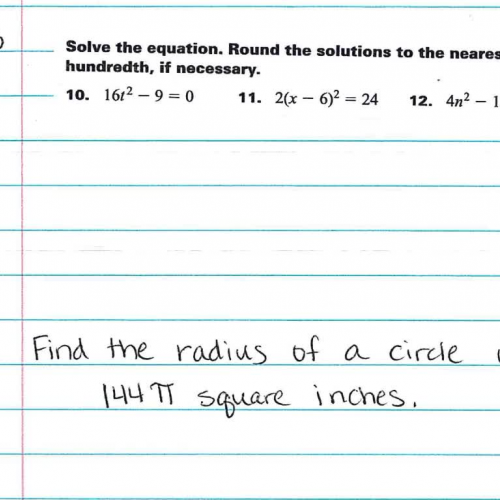 Solve the equation. Round the solutions to the
hundredth, if necessary.
10. 16t² − 9 = 0 11. 2(x − 6)² = 24 12. 4n² − 1
Find the radius of a circle
144π square inches.